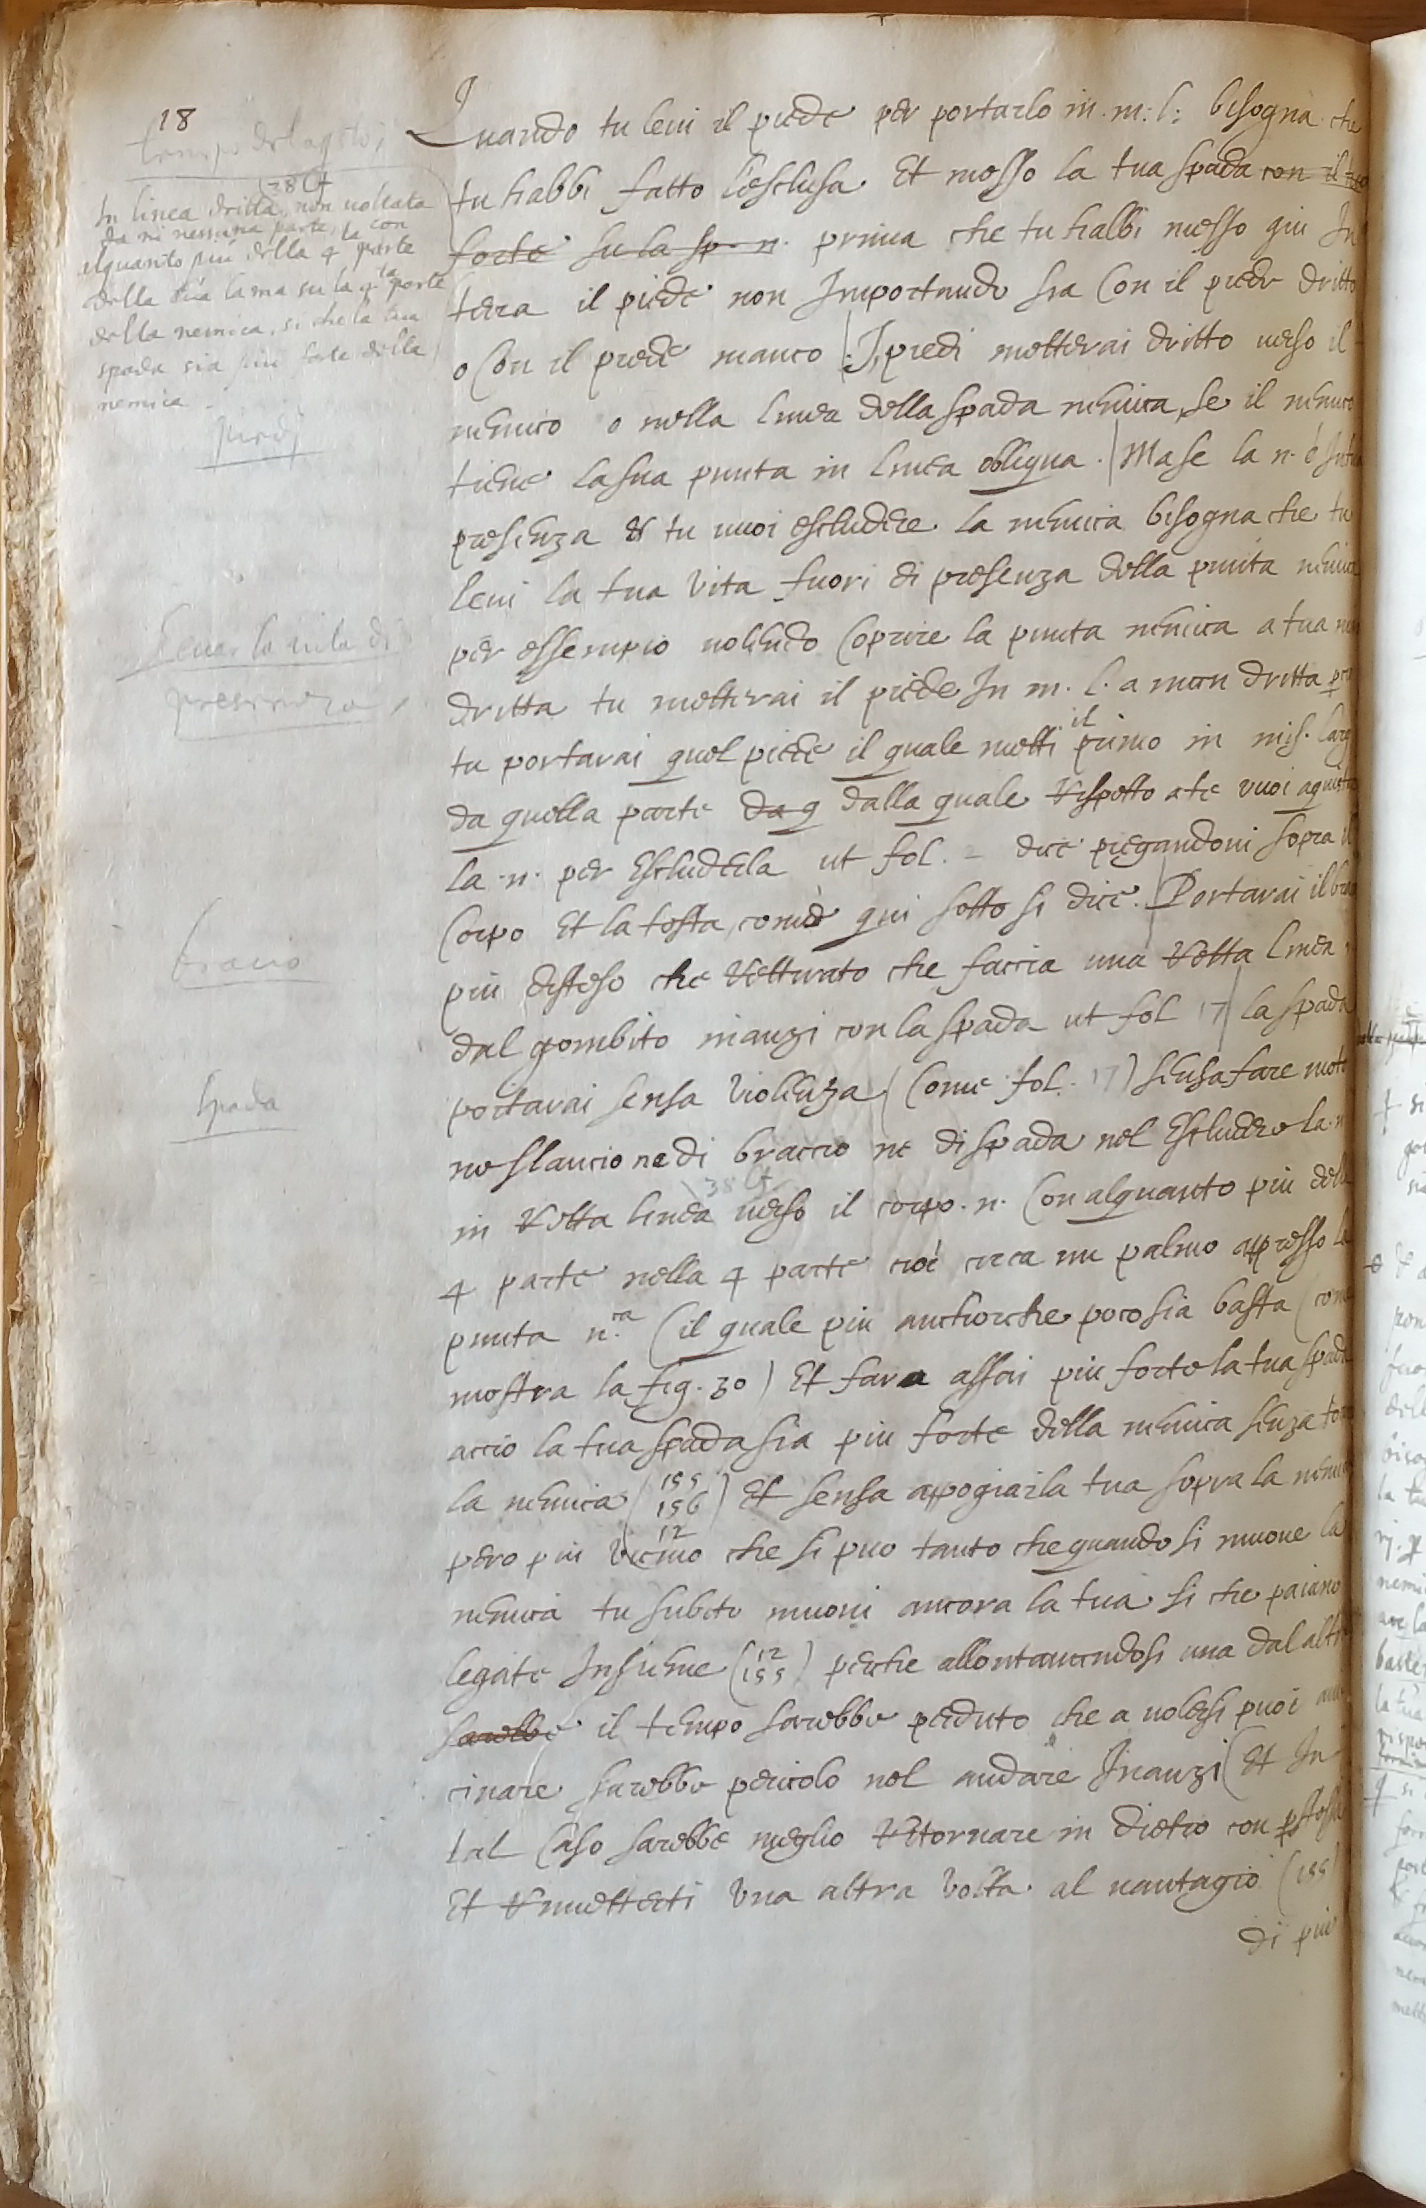 18
tempo del agito,
(38 Gt
In linea dritta, non voltata
da ni nessuna parte, la con
alquanto più della 4 parte
della tua lama su la 4 ta parte
della nemica, si che la tua
spada sia più forte della
nemica
piedi
Levar la vita di
presenza,
bracio
spada
Quando tu levi il piede per portarlo in. m: l: bisogna che
tu habbi fatto l'esclusa Et messo la tua spada con il
forte su la sp. n. prima che tu habbi messo giu In
terra il piede non Importando sia Con il piede dritto
o Con il piede manco : I piedi metterai dritto verso il
nemico o nella linea della spada nemica, se il nemico
tiene la sua punta in linea obliqua. Ma se la n. è in tua
presenza & tu vuoi escludere la nemica bisogna che tu
levi la tua vita fuori di presenza della punta nemica
per essempio volendo Coprire la punta nemica a tua
dritta tu metterai il piede In m. l. a man dritta
tu portarai quel piede il quale metti il primo in mis. larg
da quella parte da q dalla quale rispetto a te vuoi
la .n. per Escluderla ut fol. - dice piegandoni sopra il
Corpo Et la testa, come qui sotto si dice. Portarai il
più disteso che retturato che faccia una retta linea
dal gombito inanzi con la spada ut fol 17 la spada
portarai sensa violenza (Come fol. 17) sensa fare moto
ne slancio ne di braccio ne di spada nel Escludere la .n
(38 Gt
in retta linea verso il corpo .n. Con alquanto più della
4 parte nella 4 parte cioè circa un palmo appresso la
punta n.ca (il quale più anchorche poco sia basta (come
mostra la fig. 30) Et fara assai più forte la tua spada
accio la tua spada sia più forte della nemica senza
la nemica (155 156 12) Et sensa appogiar la tua sopra la
pero più vicino che si puo tanto che quando si muove la
nemica tu subito muovi ancora la tua si che paiano
legate Insieme (12 155) perche allontanandosi una dal altr
sarebbe il tempo sarebbe perduto che a volersi puoi
cinare sarebbe pericolo nel andare Inanzi (Et In
tal Caso sarebbe meglio ritornare in dietro con
Et rimetterti una altra volta al vantagio (155
di più